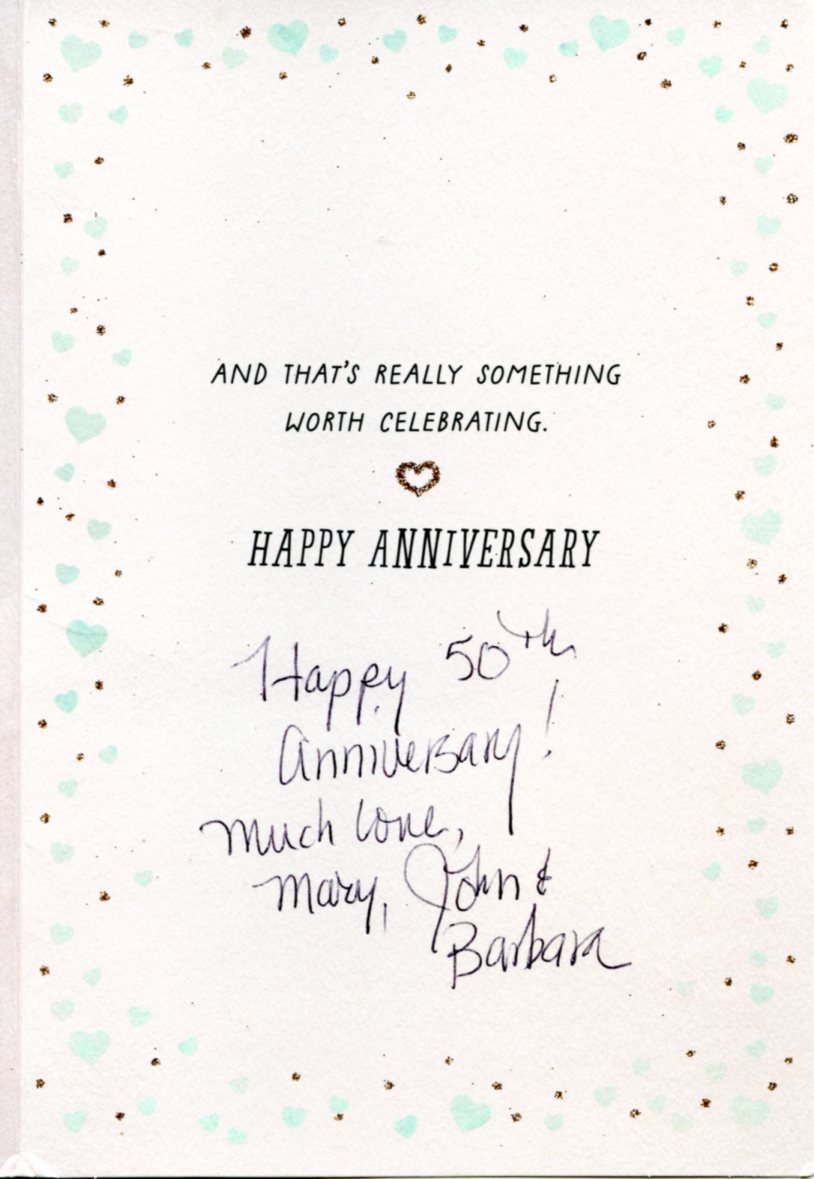 AND THAT'S REALLY SOMETHING
WORTH CELEBRATING.
HAPPY ANNIVERSARY
Happy 50th
Anniversary!
Much love,
Mary, John &
Barbara